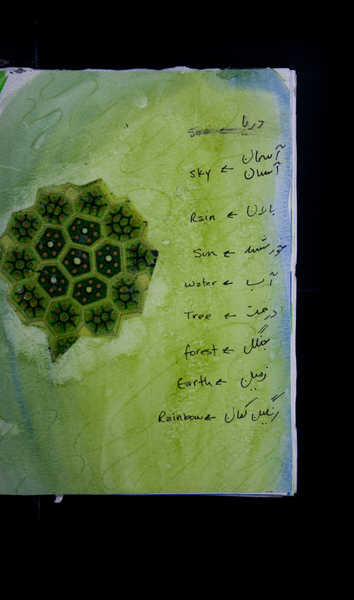 دریا ← sea
آسمان
sky ← آسمان
Rain ← باران
Sun ← خورشید
Water ← آب
Tree ← درخت
forest ← جنگل
Earth ← زمین
Rainbow ← رنگین کمان